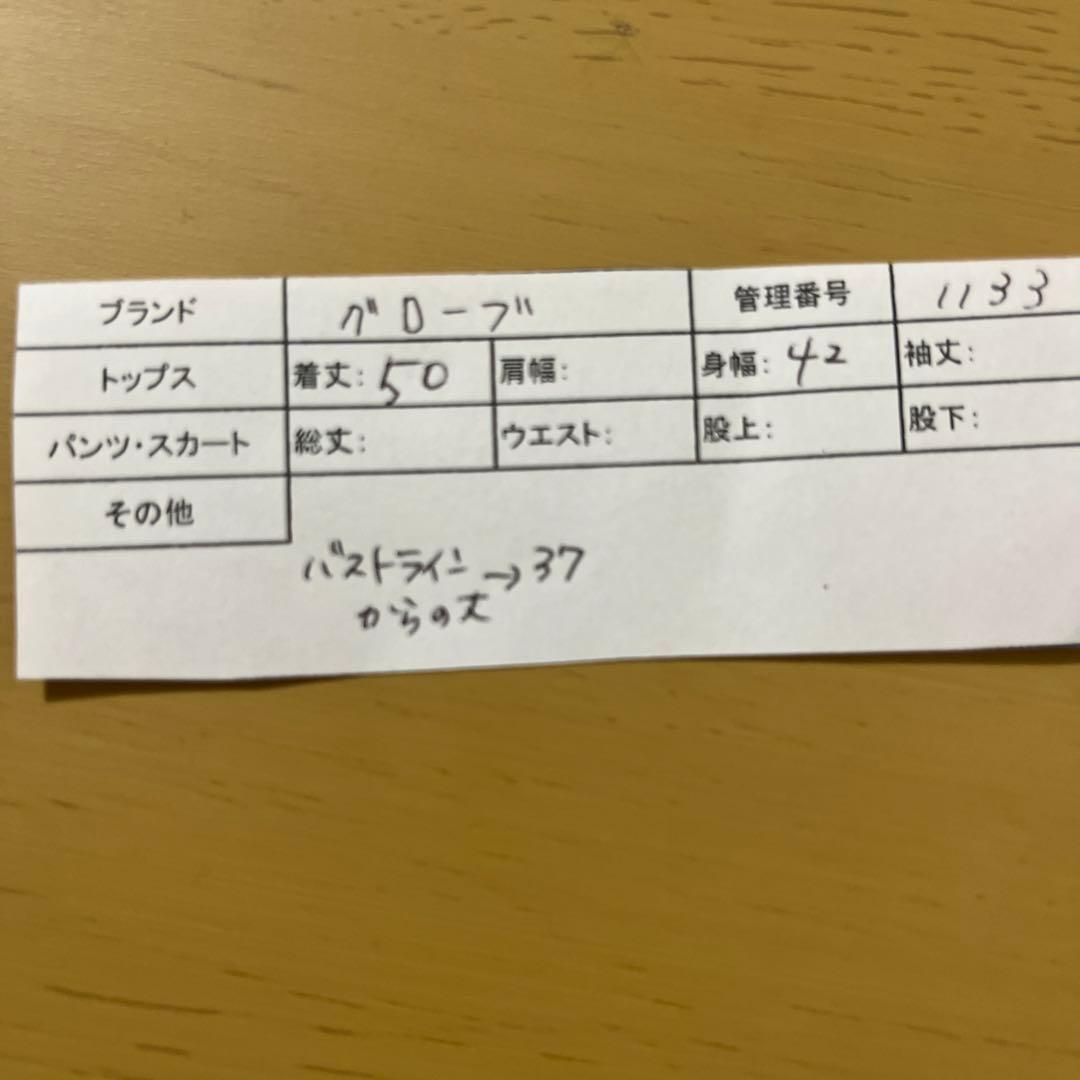 ブランド グローブ 管理番号 1133
トップス 着丈: 50 肩幅: 身幅: 42 袖丈:
パンツ・スカート 総丈: ウエスト: 股上: 股下:
その他
バストライン→37
からの丈